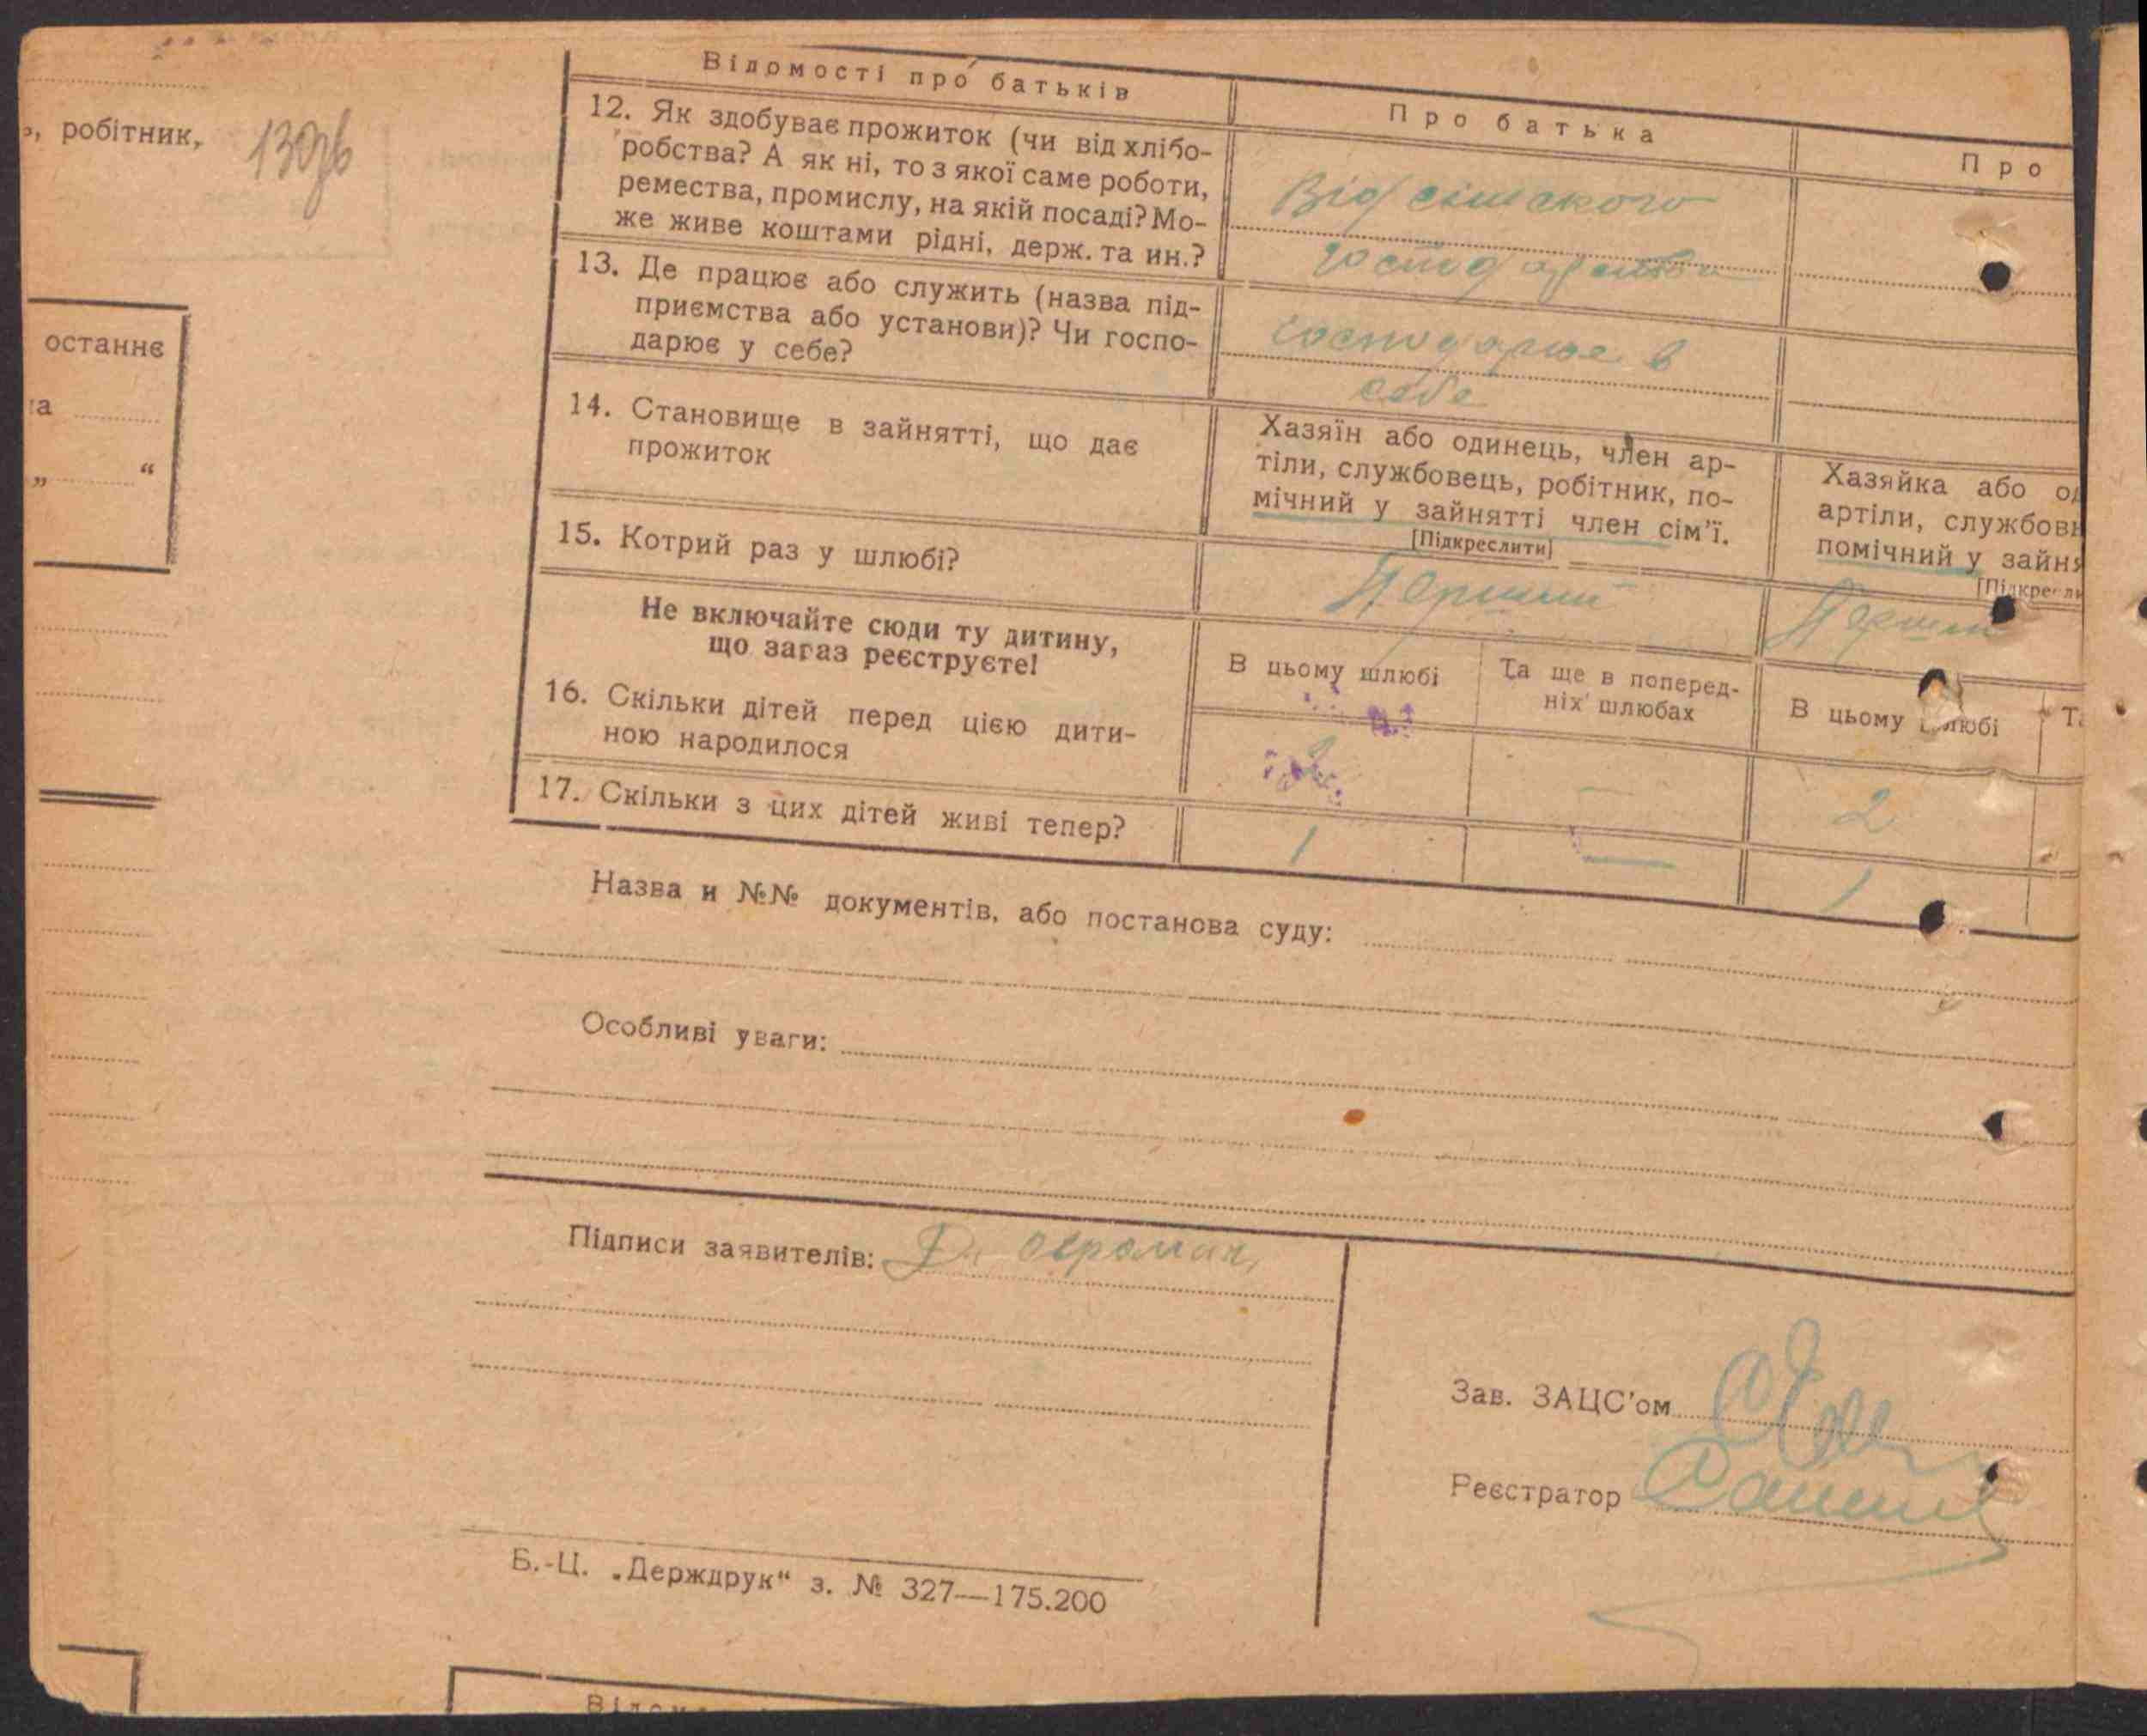 робітник,
130зв
останнє
„ “
Відомості про батьків
Про батька
Про
12. Як здобуває прожиток (чи від хлібо-
робства? А як ні, то з якої саме роботи,
ремества, промислу, на якій посаді? Мо-
же живе коштами рідні, держ. та ин.?
Від сільского
господарства
13. Де працює або служить (назва під-
приємства або установи)? Чи госпо-
дарює у себе?
господарює в
себе
14. Становище в зайнятті, що дає
прожиток
Хазяїн або одинець, член ар-
тіли, службовець, робітник, по-
мічний у зайнятті член сім'ї.
[Підкреслити]
Хазяйка або
артіли,
помічний у
15. Котрий раз у шлюбі?
Перший
Не включайте сюди ту дитину,
що зараз реєструєте!
16. Скільки дітей перед цією дити-
ною народилося
В цьому шлюбі
Та ще в поперед-
ніх шлюбах
В цьому шлюбі
2
—
2
17. Скільки з цих дітей живі тепер?
1
—
1
Назва и №№ документів, або постанова суду:
Особливі уваги:
Підписи заявителів:
Зав. ЗАЦС'ом
Реєстратор
Б.-Ц. „Держдрук“ з. № 327—175.200